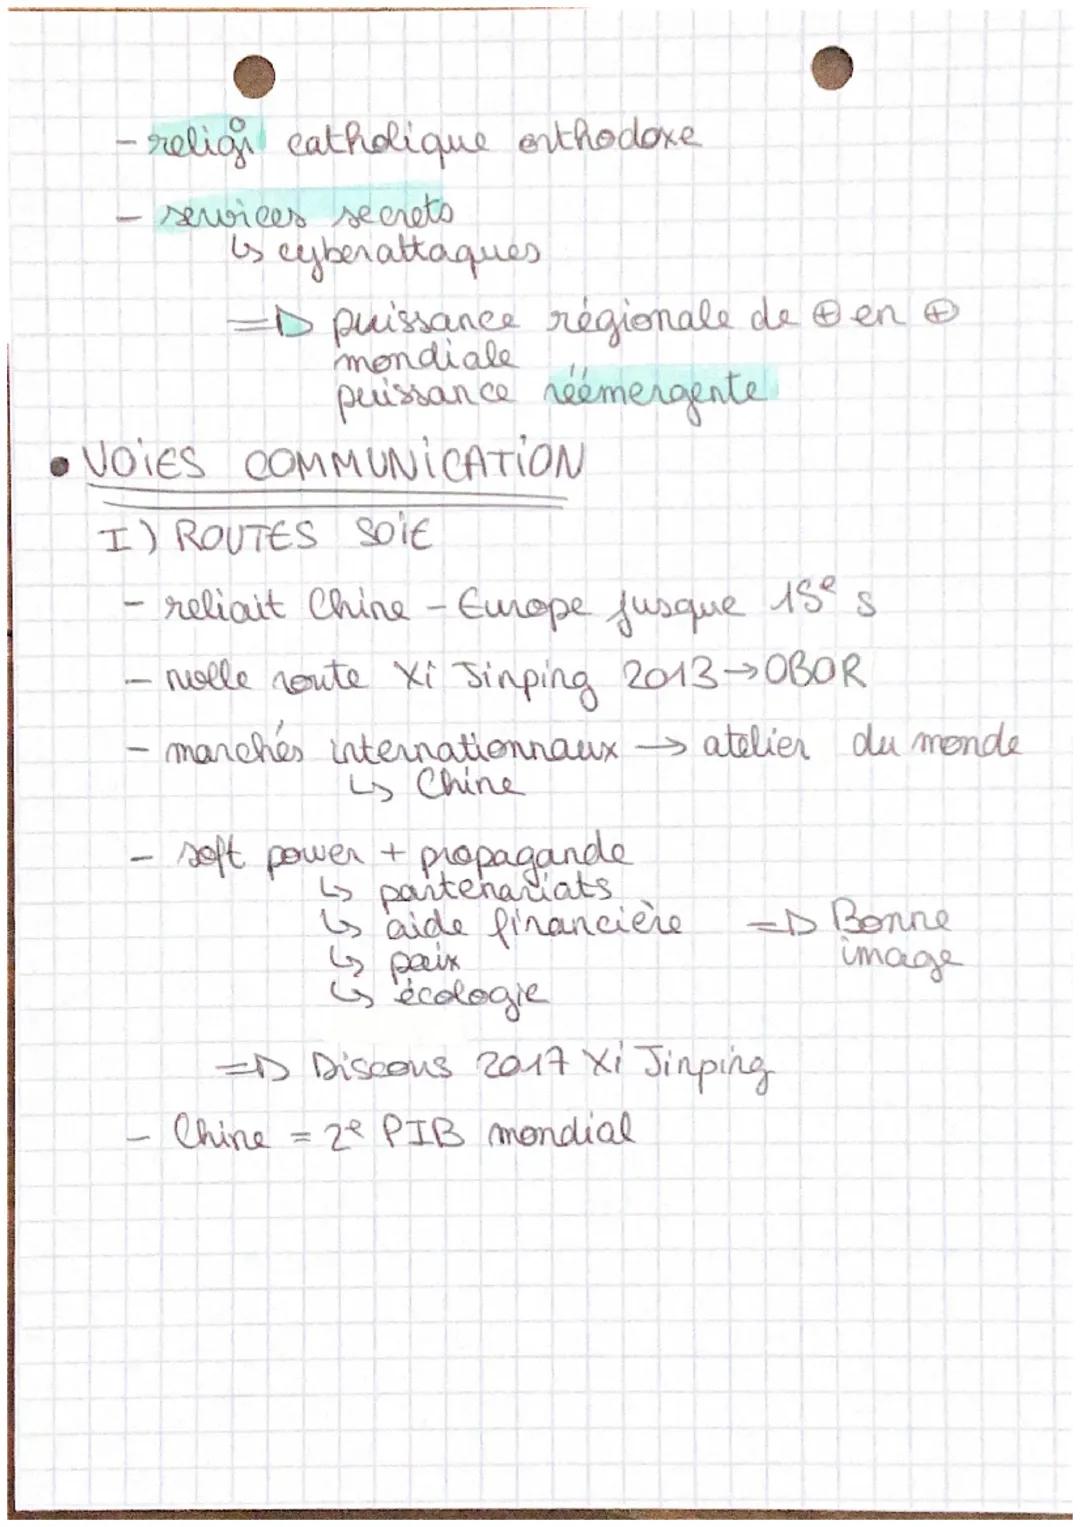 - religi° catholique orthodoxe
- services secrets
↳ cyberattaques
=> puissance régionale de ⊕ en ⊕
mondiale
puissance réémergente
• VOIES COMMUNICATION
I) ROUTES SOIE
- reliait Chine - Europe jusque 15e s
- nvlle route Xi Jinping 2013 → OBOR
- marchés internationnaux → atelier du monde
↳ Chine
- soft power + propagande
↳ partenariats
↳ aide financière => Bonne
↳ paix image
↳ écologie
=> Discous 2017 Xi Jinping
- Chine = 2e PIB mondial